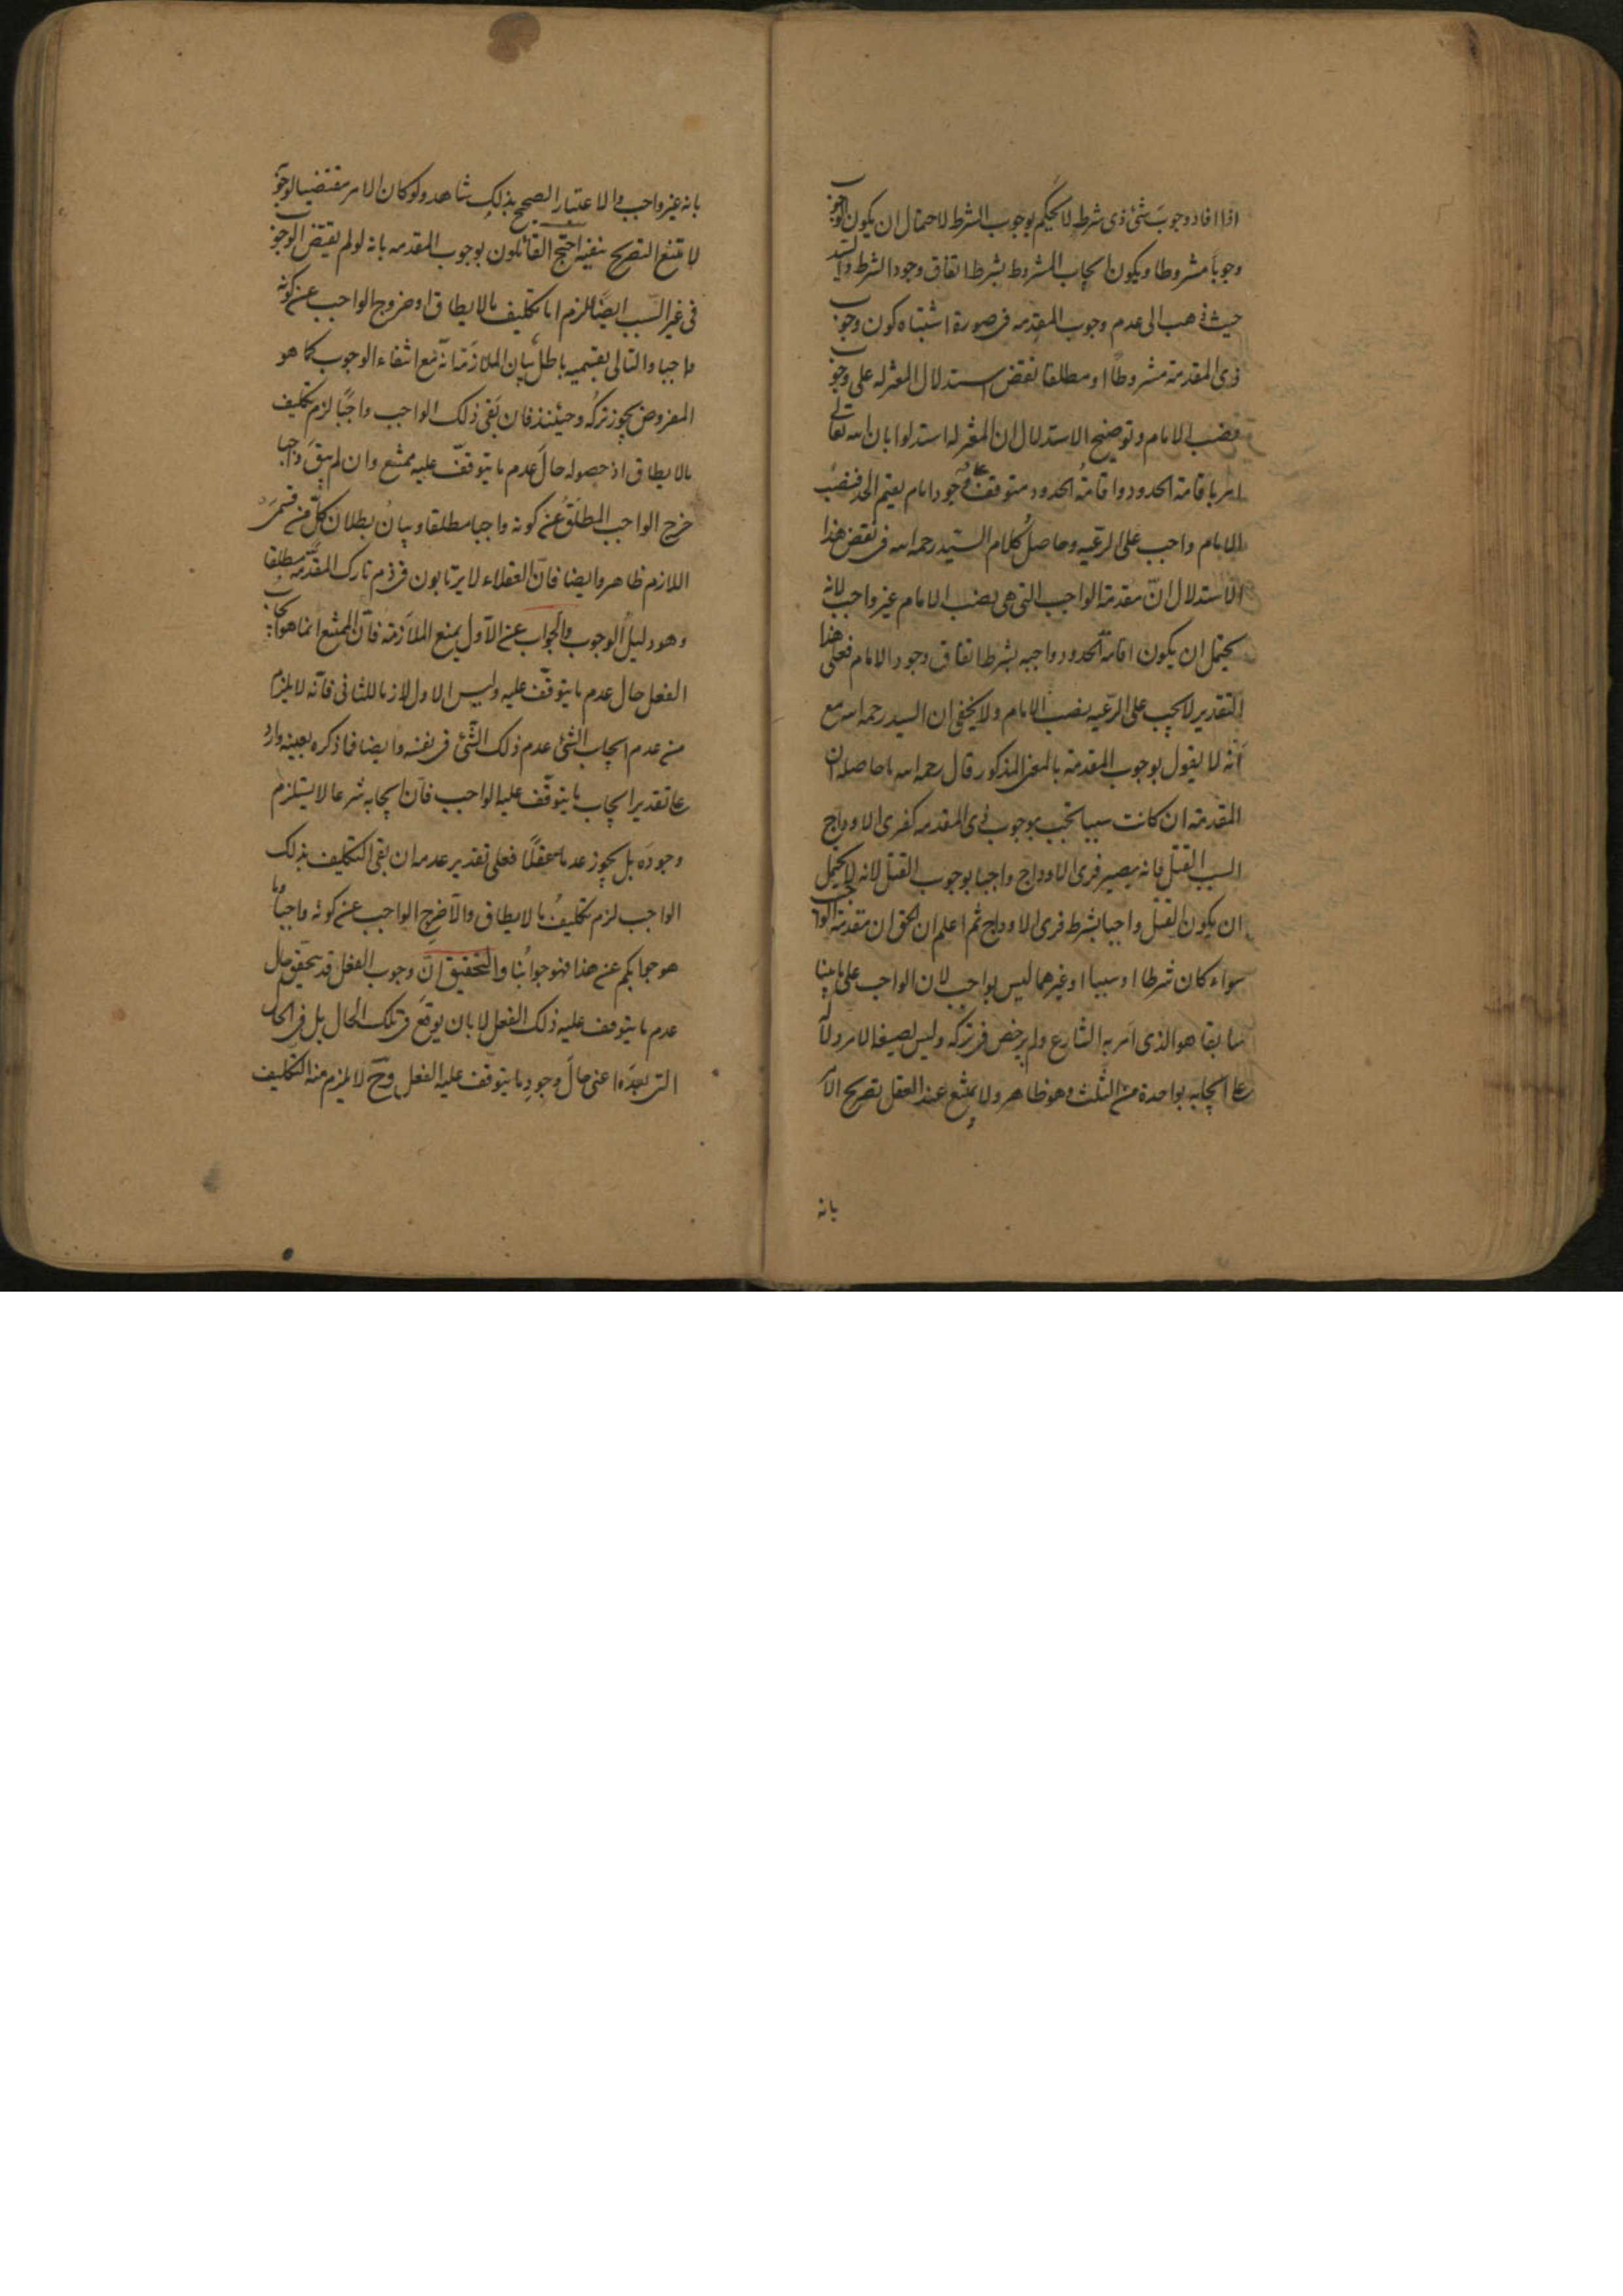 اذا افاد وجوبَ شئ ذى شرط لا يحكم بوجوب الشرط لاحتمال ان يكون الوجوب
وجوباً مشروطا ويكون ايجاب المشروط بشرط اتفاق وجود الشرط والسيد
حيث ذهب الى عدم وجوب المقدمه فى صورة اشتباه كون وجوب
ذى المقدمة مشروطاً او مطلقا نقض استدلال المعتزله على وجوب
نصب الامام وتوضيح الاستدلال ان المعتزله استدلوا بان الله تعالى
امر باقامة الحدود واقامةُ الحدود متوقفة على وجود امام يقيم الحد فنصب
الامام واجب على الرعيه وحاصل كلام السيّد رحمه الله فى نقض هذا
الاستدلال انّ مقدمة الواجب التى هى نصب الامام غير واجب لانه
يحتمل ان يكون اقامة الحدود واجبه بشرط اتفاق وجود الامام فعلى هذا
التقدير لا يجب على الرّعيه نصب الامام ولا يخفى ان السيد رحمه الله مع
انّه لا يقول بوجوب المقدمة بالمعنى المذكور قال رحمه الله ما حاصله ان
المقدمة ان كانت سببا تجب بوجوب ذى المقدمه كفرى الاوداج
السبب القتل فانه يصير فرى الاوداج واجبا بوجوب القتل لانه لا يحتمل
ان يكون القتل واجبا بشرط فرى الاوداج ثم اعلم ان الحق ان مقدمة الواجب
سواء كان شرطا او سببا او غيرهما ليس بواجب لان الواجب على ما بينا
سابقا هو الذى امر به الشارع ولم يرخص فى تركه وليس لصيغة الامر دلالة
على ايجابه بواحدة من الثلث وهو ظاهر ولا يمتنع عند العقل تصريح الآمر
بانه
بانه غير واجب والاعتبار الصحيح بذلك شاهد ولو كان الامر مقتضيا لوجوبه
لامتنع التصريح بنفيه احتج القائلون بوجوب المقدمه بانه لو لم يقتض الوجوب
فى غير السّبب ايضاً للزم اما تكليف ما لا يطاق او خروج الواجب عن كونه
واجبا والتالى بقسميه باطل بيان الملازمة انّه مع انتفاء الوجوب كما هو
المفروض يجوز تركه وحينئذ فان بقى ذلك الواجب واجبًا لزم تكليف
ما لا يطاق اذ حصوله حالَ عدم ما يتوقفّ عليه ممتنع وان لم يبقَ واجبا
خرج الواجب المطلقُ عن كونه واجبا مطلقا وبيانُ بطلان كلٍّ من قسمى
اللازم ظاهر وايضا فانّ العقلاء لا يرتابون فى ذم تارك المقدّمة مطلقا
وهو دليلُ الوجوب والجواب عن الاّول بمنع الملازمة فانّ الممتنع انما هو ايجاب
الفعل حال عدم ما يتوقّف عليه وليس الاول لازما للثانى فانّه لا يلزم
من عدم ايجاب الشئ عدم ذلك الشّئ فى نفسه وايضا فما ذكره بعينه وارد
على تقدير ايجاب ما يتوقّف عليه الواجب فانّ ايجابه شرعا لا يستلزم
وجودَه بل يجوز عدمه عقلاً فعلى تقدير عدمه ان بقى التكليف بذلك
الواجب لزم تكليفُ ما لا يطاق والاّ خرج الواجب عن كونه واجباً وما
هو جوابكم عن هذا فهو جوابُنا والتحقيق انّ وجوب الفعل قد يتحقق حال
عدم ما يتوقف عليه ذلك الفعل لا بان يوقَع فى تلك الحال بل فى الحال
التى بعدَه اعنى حالَ وجودِ ما يتوقف عليه الفعل وحَ لا يلزم منه التكليف